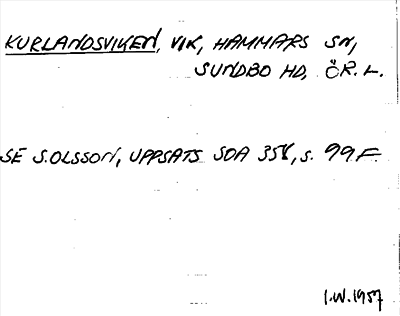 KURLANDSVIKEN, VIK, HAMMARS SN,
SUNDBO HD, ÖR. L.
SE S. OLSSON, UPPSATS SOA 358, S. 99 F.
I.W. 1957